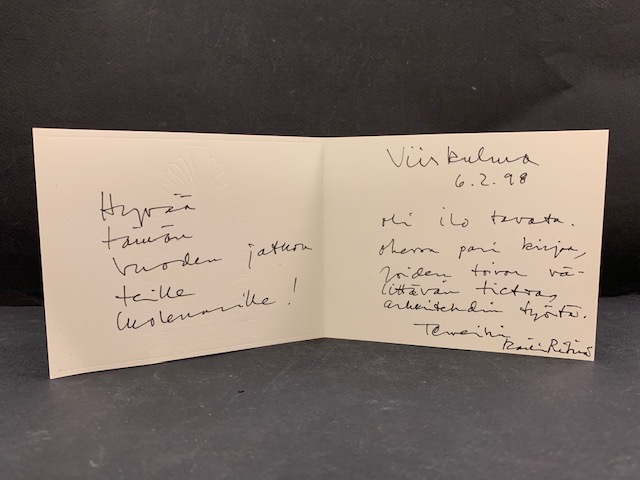 Hyvää
tämän
vuoden jatkoa
teille
molemmille!
Viiskulma
6.2.98
oli ilo tavata.
oheva pari kirjaa,
joiden toivon vä-
littävän tietoa
arkkitehdin työstä.
Terveisin